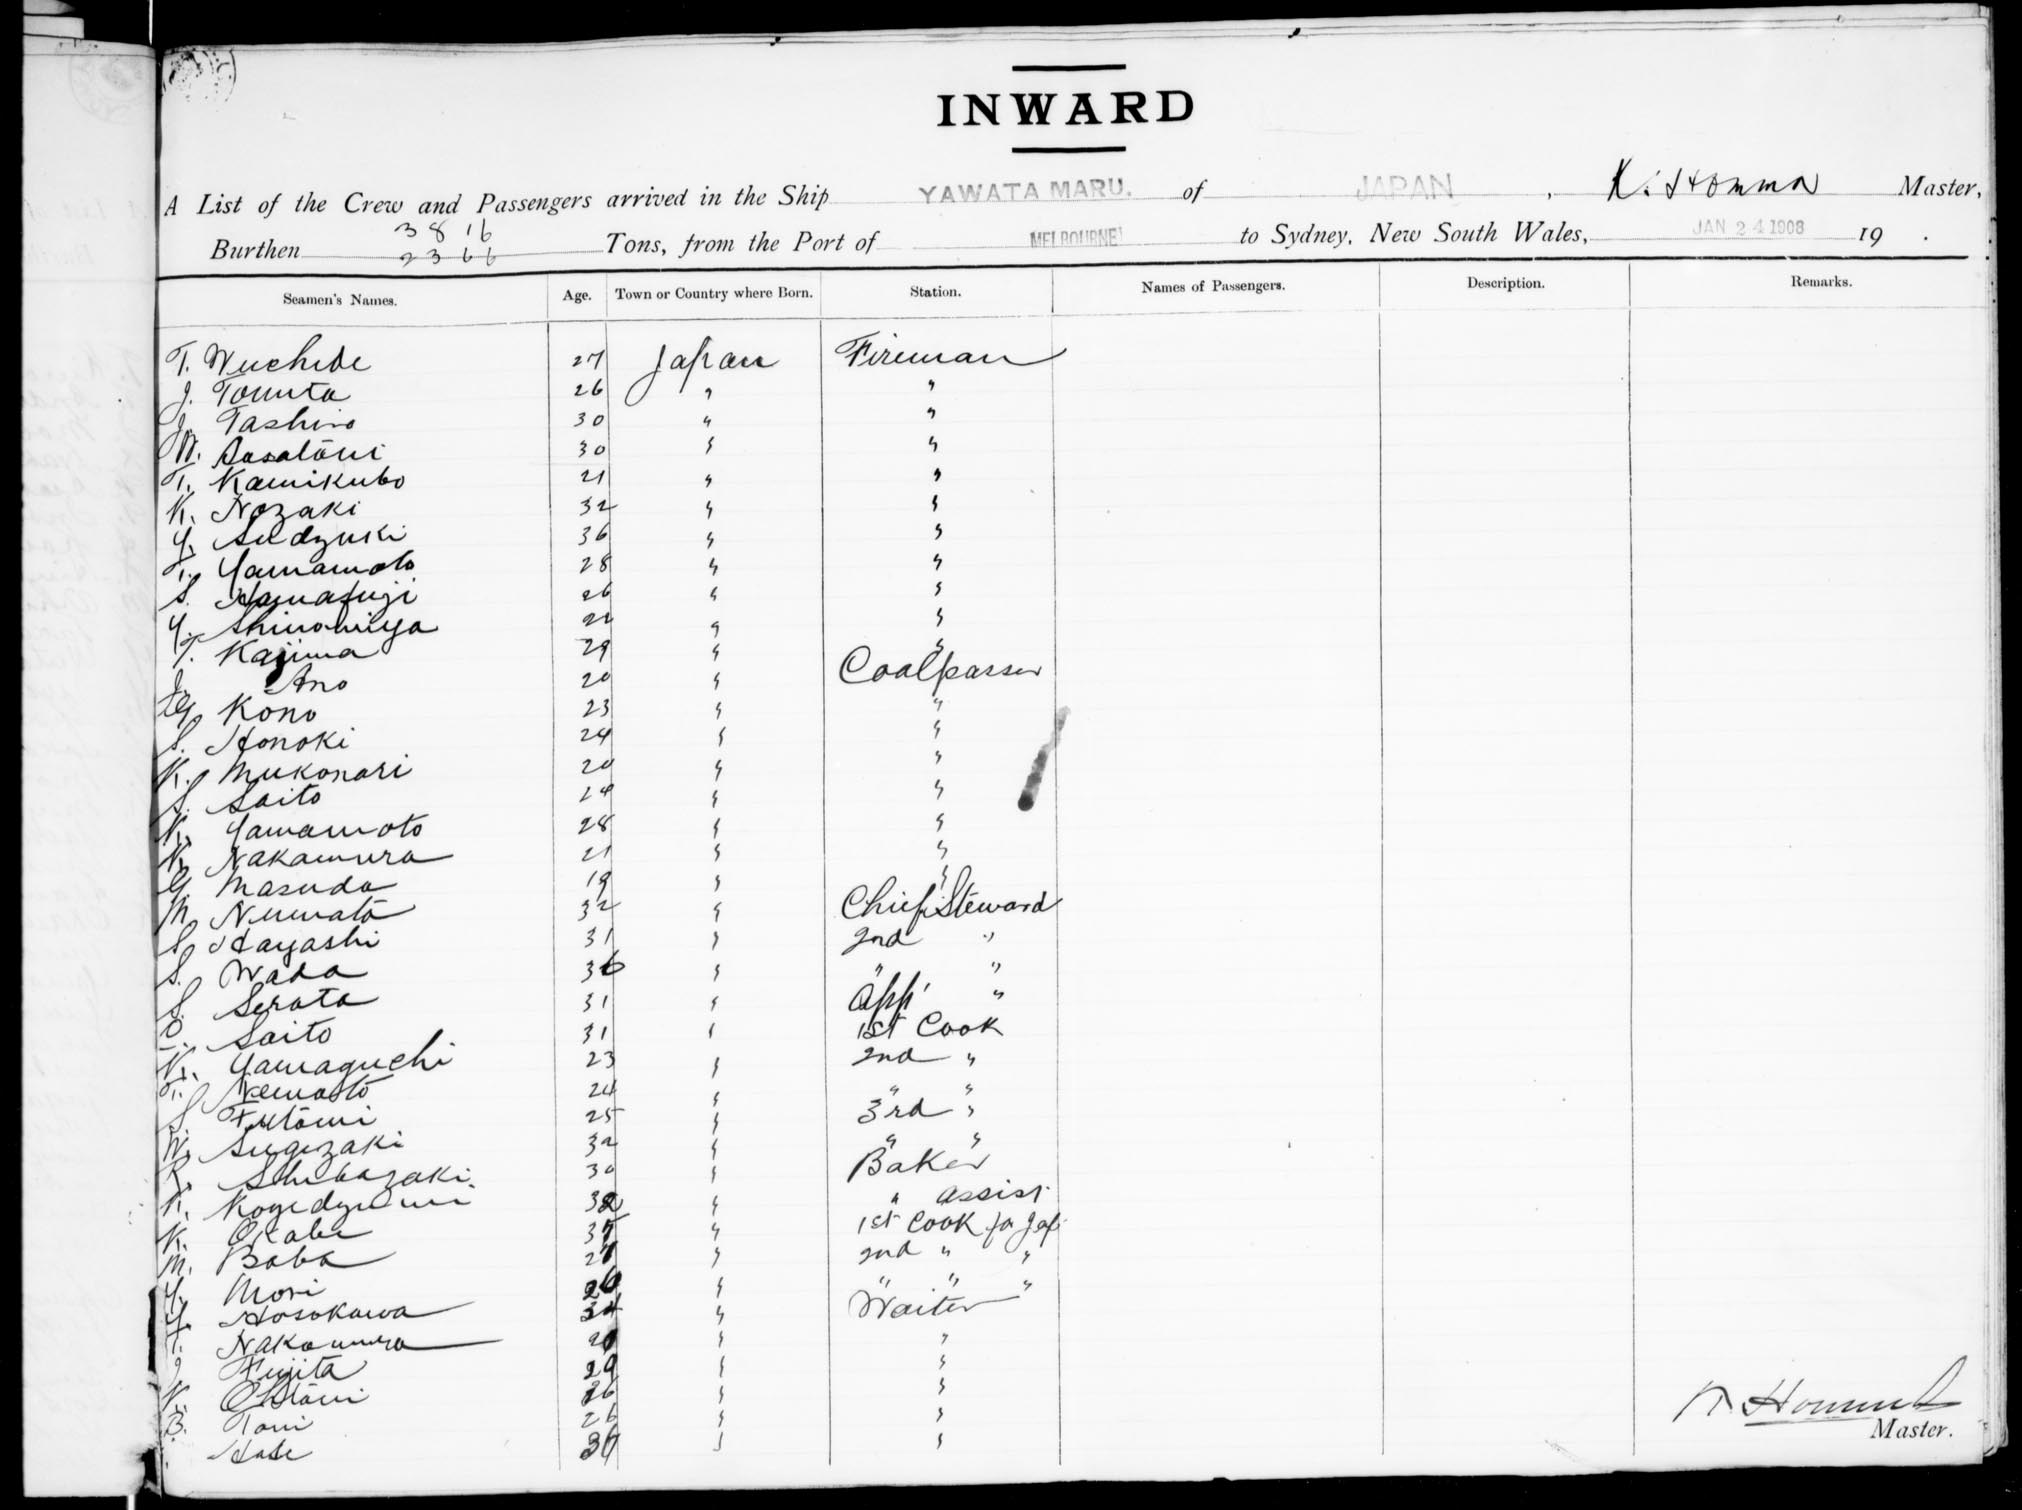 INWARD
A List of the Crew and Passengers arrived in the Ship YAWATA MARU. of JAPAN , K. Homma Master,
3816
Burthen 2366 Tons, from the Port of MELBOURNE to Sydney, New South Wales, JAN 24 1908 19 .
Seamen's Names. Age. Town or Country where Born. Station. Names of Passengers. Description. Remarks.
T. 27 Japan Fireman
J. Tomita 26 " "
J. Tashiro 30 " "
M. Sasatani 30 " "
T. Kamikubo 21 " "
K. Nozaki 32 " "
Y. Sudzuki 36 " "
T. Yamamoto 28 " "
S. Hamafuji 26 " "
Y. Shinomiya "
T. Kajima 29 " "
J. Ano 20 " Coalpasser
Kono 23 " "
S. Honoki 24 " "
K. Mukonari 20 " "
S. Saito 24 " "
K. Yamamoto 28 " "
K. Nakamura 21 " "
G. Masuda 19 " "
M. Numata 32 " Chief Steward
S. Hayashi 31 " 2nd "
S. Wada 36 " " "
S. Serata 31 " App' "
Saito 31 " 1st Cook
K. Yamaguchi 23 " 2nd "
T. Nemoto 24 " " "
S. Futami 25 " 3rd "
Sugizaki 32 " " "
R. Shibazaki 30 " Baker
K. " " assist
K. Okabe " 1st Cook for Jap
M. Baba " 2nd " "
Y. Mori " " " "
Y. Hosokawa 34 " Waiter
T. Nakamura " "
J. Fujita 29 " "
K. Ohtani 26 " "
B. Tani 26 " "
" "
K. Homma
Master.